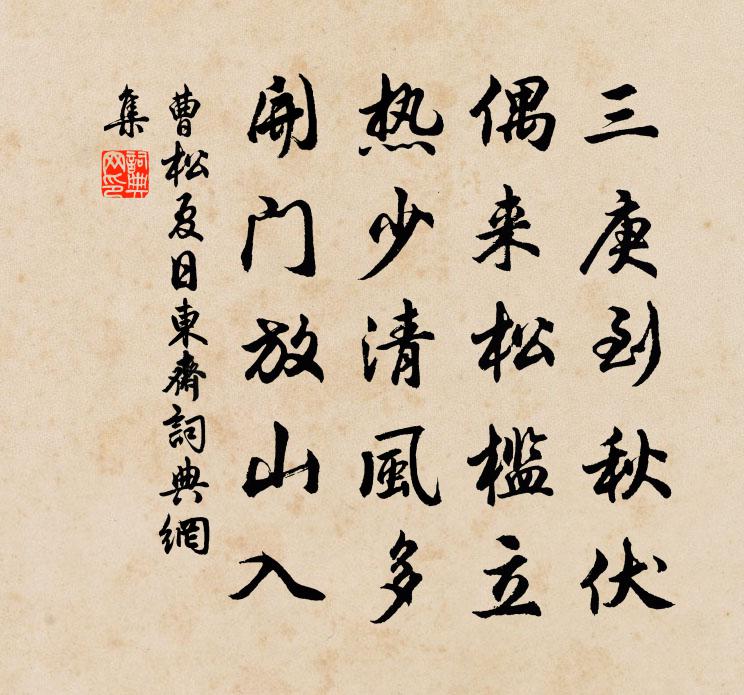 三庚到秋伏
偶来松槛立
热少清風多
開门放山入
曹松夏日東齋詞典網
集
詞典網印